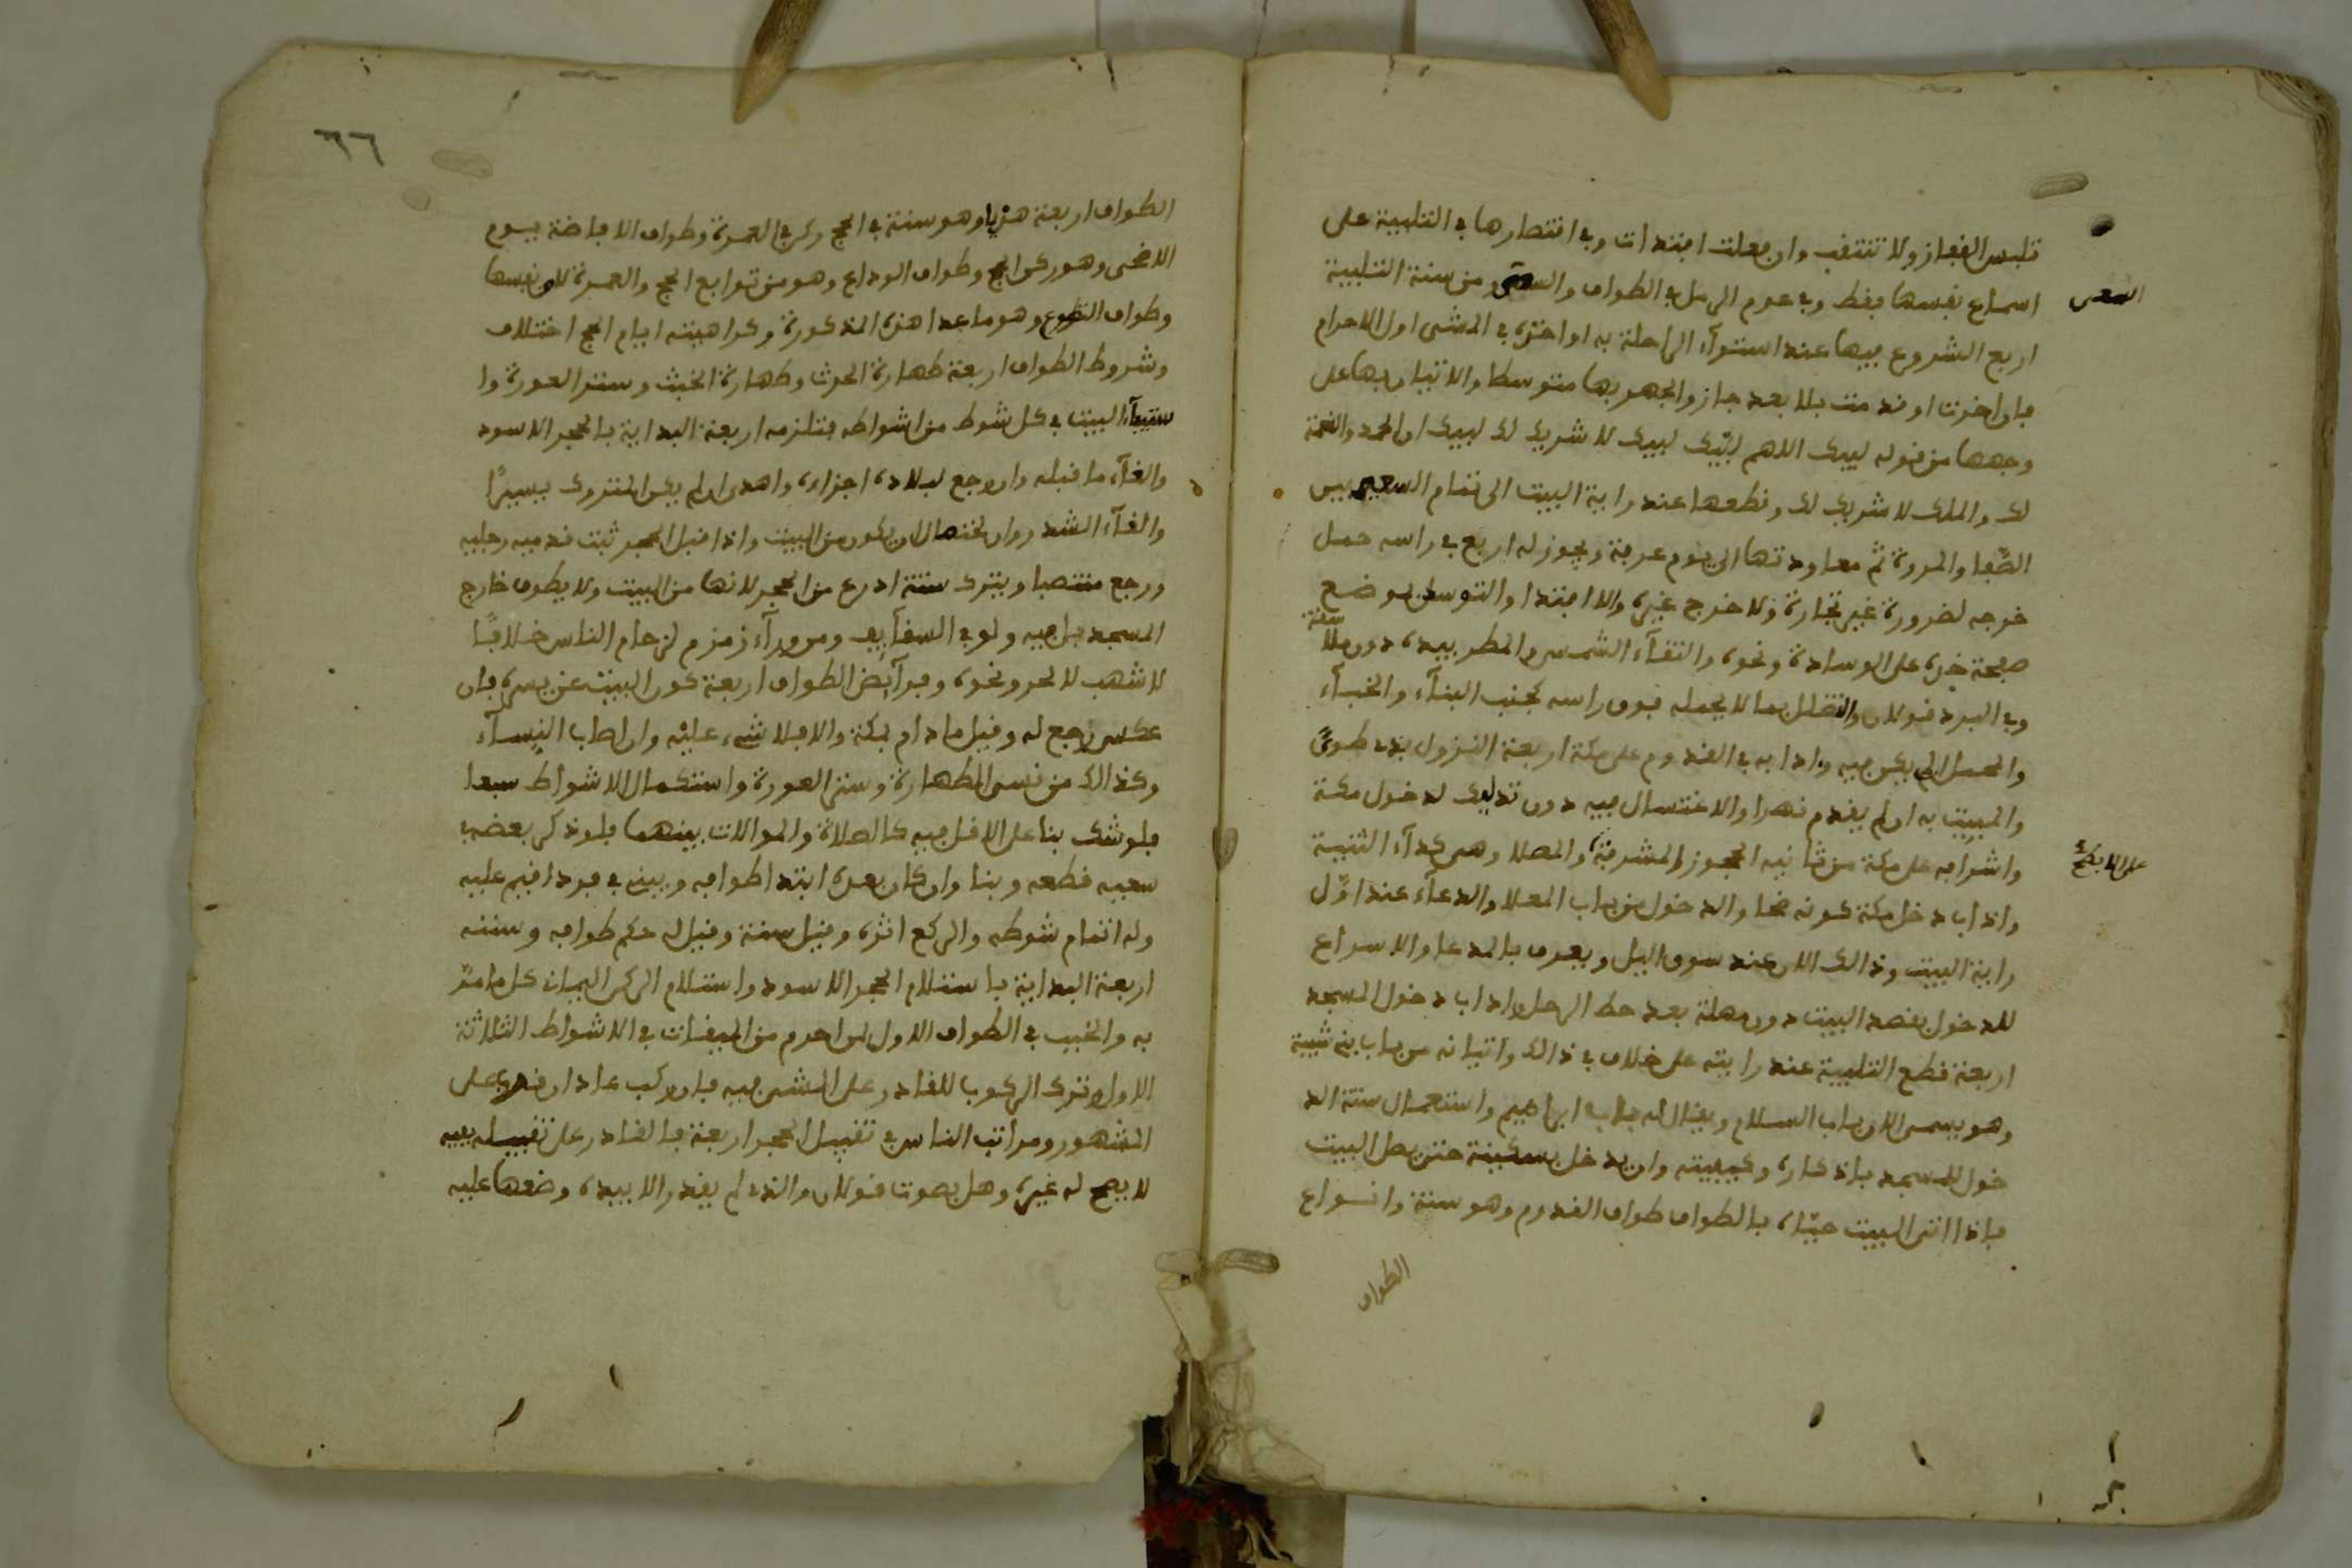 تلبس القفاز ولا تنتقب وان فعلت افتدات وفي اقتصارها في التلبية على
اسماع نفسها فقط وفي عدم الرمل في الطواف والسعي ومن سنة التلبية
السعى
اربع الشروع فيها عند استوآء الراحلة به او اخذه في المشى اول الاحرام
فان اخرت او قدمت فلا بعد جاز والجهر بها متوسطا والاتيان بها على
وجهها من قوله لبيك اللهم لبيك لبيك لا شريك لك لبيك ان الحمد والنعمة
لك والملك لا شريك لك وقطعها عند راية البيت الى تمام السعي بين
الصفا والمروة ثم معاودتها الى يوم عرفة ويجوز له اربع في راسه حمل
خرجه لضرورة غير تجارة ولا خرج غيره والا افتدا والتوسد بوضع
صفحة خده على الوسادة ونحوه واتقآء الشمس والمطر بيده دون ملاصقة
وفي البرد قولان والتظلل بما لا يحمله فوق راسه كجنب البنآء والخبآء
والمحمل ان لم يكن فيه وادابه في القدوم على مكة اربعة النزول بذي طوى
والمبيت به ان لم يقدم نهرا والاغتسال فيه دون تدليك لدخول مكة
واشرافه على مكة من ثانيه الحجوز المشرفة والمصلا وهي كدآء الثنية
على الابطح
واداب دخل مكة كونه ضحا والدخول من باب المعلا والدعآء عند اول
راية البيت وذالك الان عند سوق اليل ويعرف بالمدعا والاسراع
للدخول بقصد البيت دون مهلة بعد حط الرحل واداب دخول المسجد
اربعة قطع التلبية عند رايته على خلاف في ذالك واتيانه من باب بني شيبة
وهو يسمى الان باب السلام ويقال له باب ابراهيم واستعمال سنة الد
خول للمسجد باذكاره وكيفيته وان يدخل بسكينة حتى يصل البيت
فاذا اتى البيت حياه بالطواف طواف القدوم وهو سنة وانواع
الطواف
٦٦
الطواف اربعة هذا وهو سنة في الحج ركن في العمرة وطواف الافاضة يوم
الاضحى وهو ركن الحج وطواف الوداع وهو من توابع الحج والعمرة لا من نفسها
وطواف التطوع وهو ما عدا هذه المذكورة وكراهيته ايام الحج اختلاف
وشروط الطواف اربعة طهارة الحدث وطهارة الخبث وستر العورة وا
ستيفآء البيت في كل شوط من اشواطه فتلزمه اربعة البداية بالحجر الاسود
والغآء ما قبله وان رجع لبلاده اجزاه واهدى ان لم يكن المتروك يسيرا
والغآء الشذروان تحتها لان يكون من البيت واذا قبل الحجر ثبت قدميه رجليه
ورجع منتصبا ويترك ستة اذرع من الحجر لانها من البيت ولا يطوف خارج
المسجد بل فيه ولو في السقآيف ومن ورآء زمزم لزحام الناس خلافا
لاشهب لا لحر ونحوه وفرآئض الطواف اربعة كون البيت عن يسره فان
عكس رجع له وقيل ما دام بمكة والا فلا شيء عليه وان اصاب النسآء
وكذالك من نسى الطهارة وستر العورة واستكمال الاشواط سبعا
فلو شك بنا على الاقل فيه كالصلاة والموالات بينهما فلو ذكر بعضه في
سعيه قطعه وبنا وان كان بعده ابتدا طوافه ويبنى في فرد اقيم عليه
وله اتمام شوطه والركع اثره وقيل سنة وقيل له حكم طوافه وسننه
اربعة البداية باستلام الحجر الاسود واستلام الركن اليمان كل ما مر
به والخبب في الطواف الاول لمن احرم من الميقات في الاشواط الثلاثة
الاول وترك الركوب للقادر على المشي فيه فان ركب عاد ان قدر على
المشهور ومراتب الناس في تقبيل الحجر اربعة فالقادر على تقبيله بفيه
لا يصح له غيره وهل يصوت قولان والذي لم يقدر الا بيده وضعها عليه